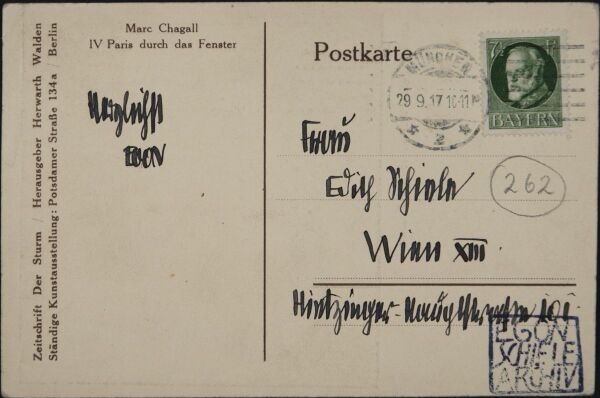 Zeitschrift Der Sturm / Herausgeber Herwarth Walden
Ständige Kunstausstellung: Potsdamer Straße 134a / Berlin
Marc Chagall
IV Paris durch das Fenster
Herzlichst
EGON
Postkarte
MÜNCHEN
29.9.17
2
7½ PF
BAYERN
Frau
Edith Schiele
Wien XIII
Hietzinger-Hauptstrasse 101
262
EGON
SCHIELE
ARCHIV